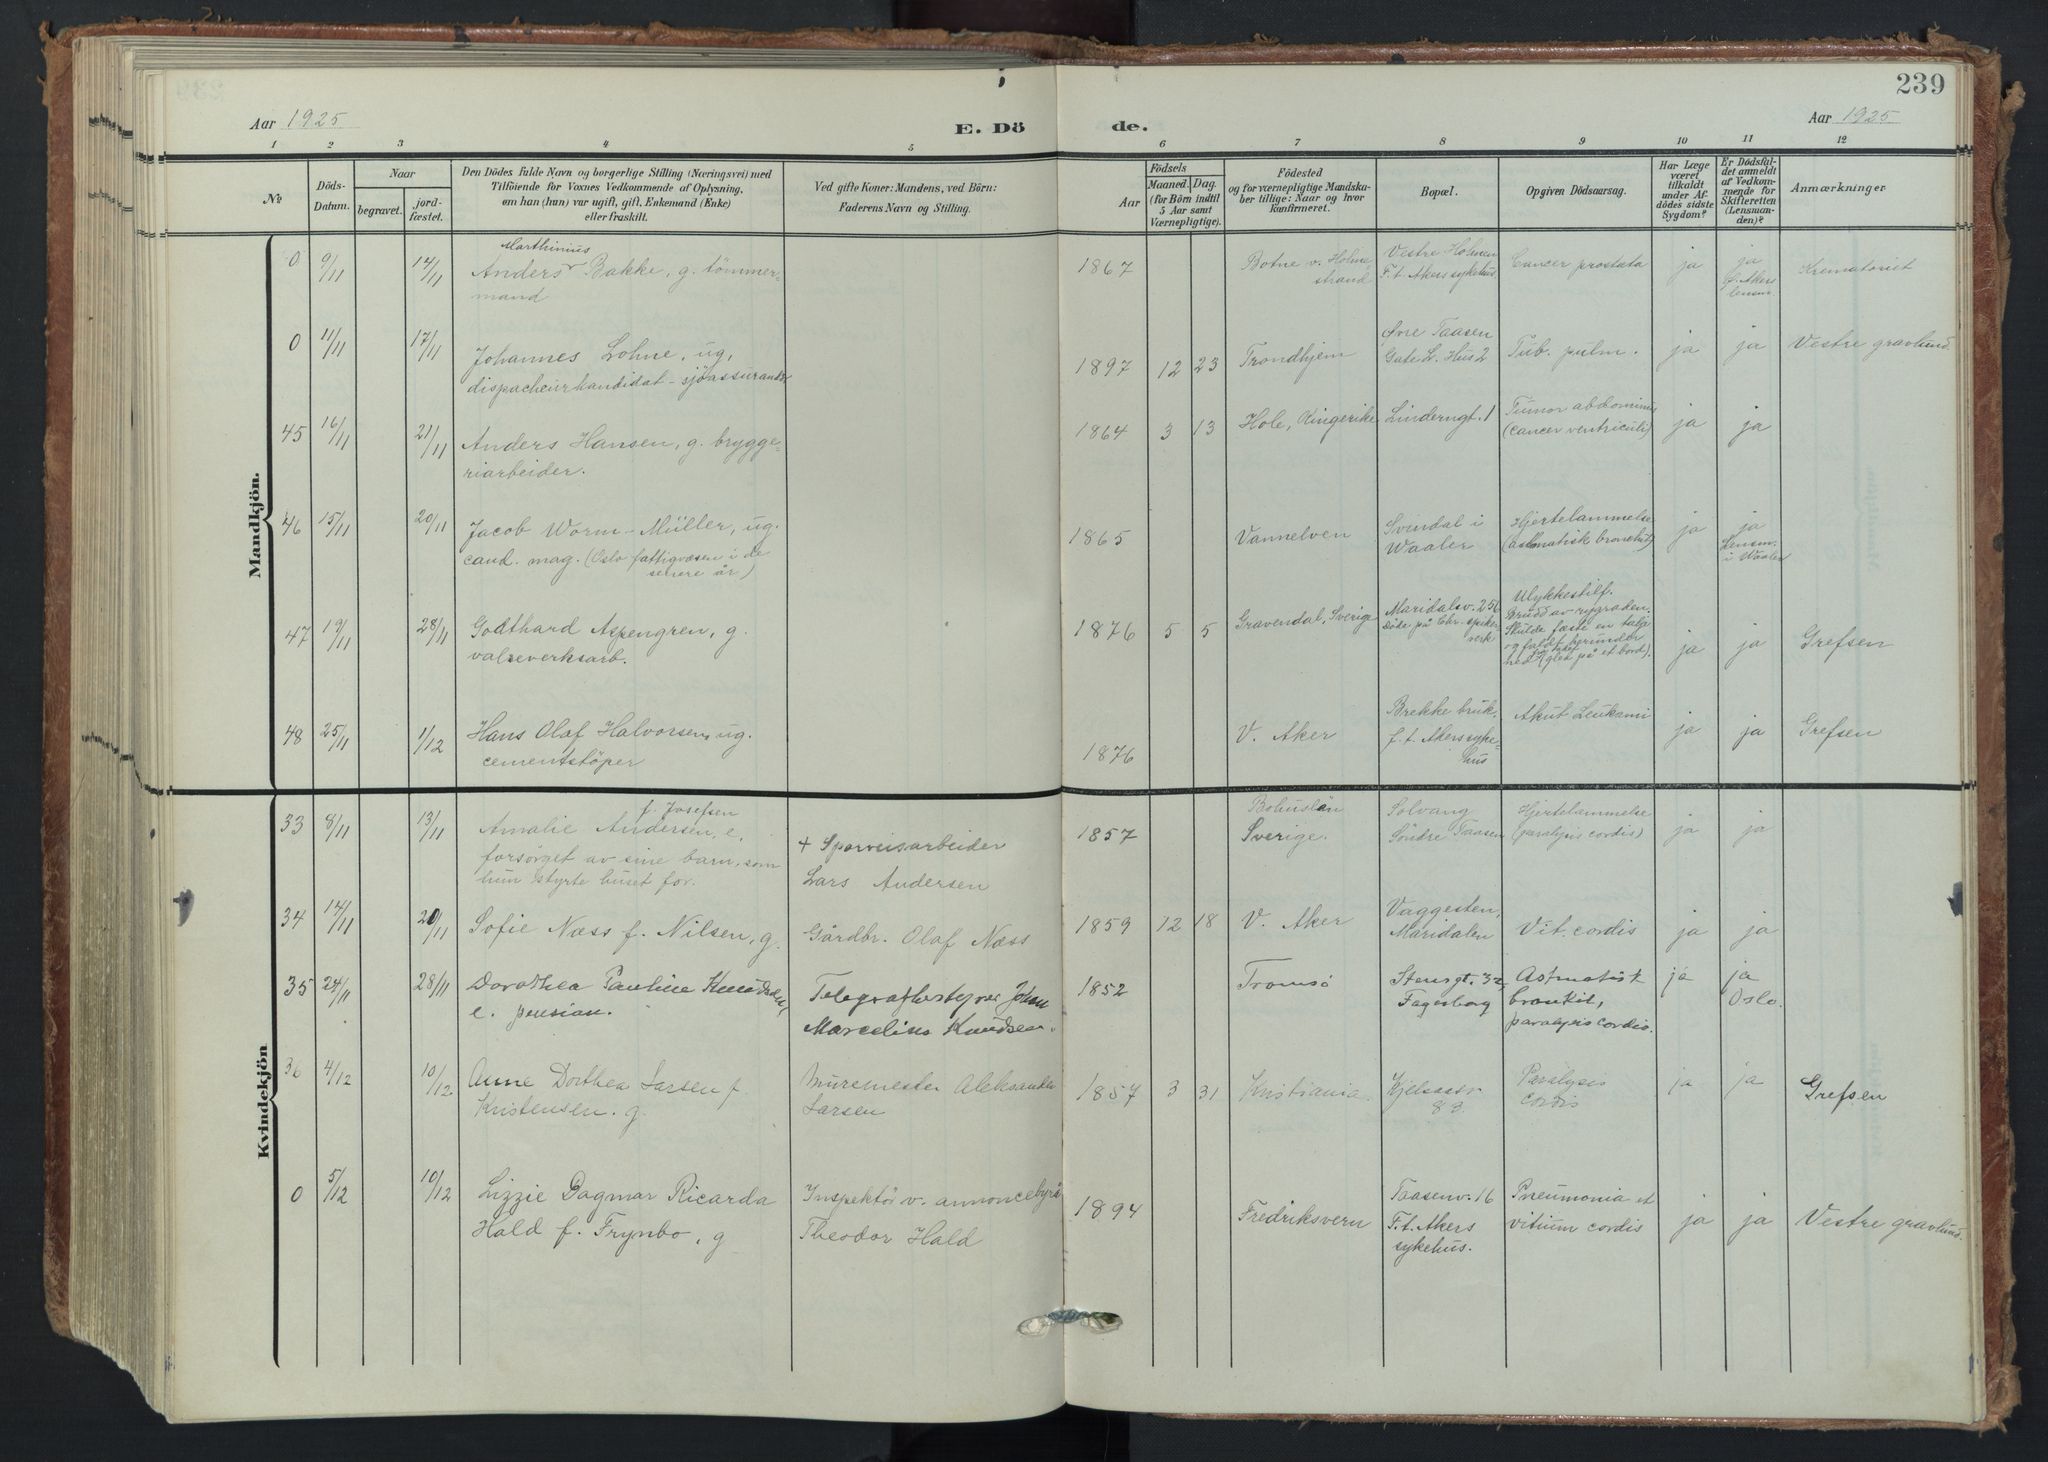 239
Aar 1925
E. Dö
de.
Aar 1925
1 2 3 4 5 6 7 8 9 10 11 12
№
Döds-
Datum.
Naar
begravet.
jord-
fæstet.
Den Dödes fulde Navn og borgerlige Stilling (Næringsvei) med
Tilföiende for Voxnes Vedkommende af Oplysning,
om han (hun) var ugift, gift, Enkemand (Enke)
eller fraskilt.
Ved gifte Koner: Mandens, ved Börn:
Faderens Navn og Stilling.
Födsels
Aar
Maaned. Dag.
(for Börn indtil
5 Aar samt
Værnepligtige).
Födested
og for værnepligtige Mandska-
ber tillige: Naar og hvor
Konfirmeret.
Bopæl.
Opgiven Dödsaarsag.
Har Læge
været
tilkaldt
under Af-
dödes sidste
Sygdom?
Er Dödsfal-
det anmeldt
af Vedkom-
mende for
Skifteretten
(Lensman-
den)?
Anmærkninger
Mandkjön.
0 9/11 14/11
Marthinius
Anders Bakke, g. tömmer-
mand
1867
Botne v. Holme
strand
Vestre Holmen
F.t. Akers sykehus
Cancer prostata
ja
ja
Akers
lensm.
Krematoriet
0 11/11 17/11
Johannes Lohne, ug,
dispacheurkandidat - sjöassurandör
1897 12 23
Trondhjem
Övre Taasen
Gate L. Hus 2
Tub. pulm.
ja ja
Vestre gravlund
45 16/11 21/11
Anders Hansen, g. brygge-
riarbeider.
1864 3 13
Hole, Ringerike
Linderngt. 1
Tumor abdominis
(cancer ventriculi)
ja ja
46 15/11 20/11
Jacob Worm-Müller, ug.
cand. mag. (Oslo fattigvæsen i de
senere år)
1865
Vannelven
Svindal i
Waaler
Hjertelammelse
(astmatisk bronchit)
ja
ja
Lensm.
i Waaler
47 19/11 28/11
Godthard Aspengren, g.
valseverksarb.
1876 5 5
Gravendal, Sverige
Maridalsv. 256
Döde på Chr. spiker
verk
Ulykkestilf.
Brudd av rygraden.
Skulde fæste en talje
og faldt herunder
ned (gled på et bord).
ja ja
Grefsen
48 25/11 1/12
Hans Olaf Halvorsen, ug.
cementstöper
1876
V. Aker
Brekke bruk.
f. t. Akers syke-
hus
Akut Leukami
ja ja
Grefsen
Kvindekjön
33 8/11 13/11
f. Josefsen
Amalie Andersen, e.
forsörget av sine barn, som
hun styrte huset for.
+ Sporveisarbeider
Lars Andersen
1857
Bohuslän
Sverige.
Solvang
Söndre Taasen
Hjertelammelse
(paralysis cordis)
ja ja
34 14/11 20/11
Sofie Næss f. Nilsen, g.
Gårdbr. Olaf Næss
1859 12 18
V. Aker
Vaggesten,
Maridalen
Vit. cordis
ja ja
35 24/11 28/11
Dorothea Pauline Knudsen,
e. pension.
Telegrafbestyrer Johan
Marcelius Knudsen.
1852
Tromsö
Stensgt. 32,
Fagerborg
Astmatisk
bronkit,
paralysis cordis.
ja
ja
Oslo.
36 4/12 10/12
Anne Dorthea Larsen f.
Kristensen. g.
Muremester Aleksander
Larsen
1857 3 31
Kristiania.
Kjelsaasv.
83.
Paralysis
cordis
ja ja
Grefsen
0 5/12 10/12
Lizzie Dagmar Ricarda
Hald f. Frynbo, g
Inspektör v. annoncebyrå
Theodor Hald
1894
Fredriksvern
Taasenv. 16
F. t. Akers
sykehus.
Pneumonia et
vitium cordis
ja ja
Vestre gravlund.